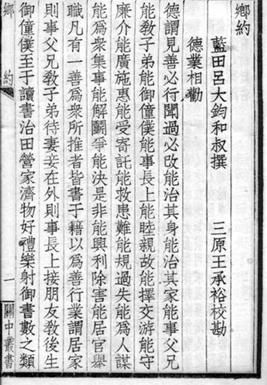 鄉約
藍田呂大鈞和叔撰　三原王承裕校勘
德業相勸
德謂見善必行聞過必改能治其身能治其家能事父兄
能教子弟能御僮僕能事長上能睦親故能擇交游能守
廉介能廣施惠能受寄託能救患難能規過失能為人謀
能為衆集事能解鬭爭能決是非能興利除害能居官舉
職凡有一善為衆所推者皆書于籍以為善行業謂居家
則事父兄教子弟待妻妾在外則事長上接朋友教後生
御僮僕至于讀書治田營家濟物好禮樂射御書數之類
鄉約　一　關中叢書